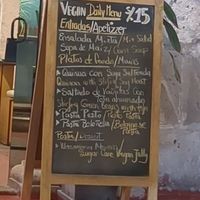 VEGAN Daily Menu S/.15
Entradas/Apetizzer
Ensalada Mixta/Mix Salad
Sopa de Maiz/Corn Soup
Platos de fondo/Mains
Quinua con Soya Salteada
Quinua with Stirfry Soy Meat
Saltado de Vainitas con
soya ahumada
Stirfry Green beans with
Pasta Pesto/Pesto Pasta
Pasta Boloñesa/Bolognese
Pasta
Postre/Dessert
Mazamorra Morada
Sugar Cane Vegan Jelly